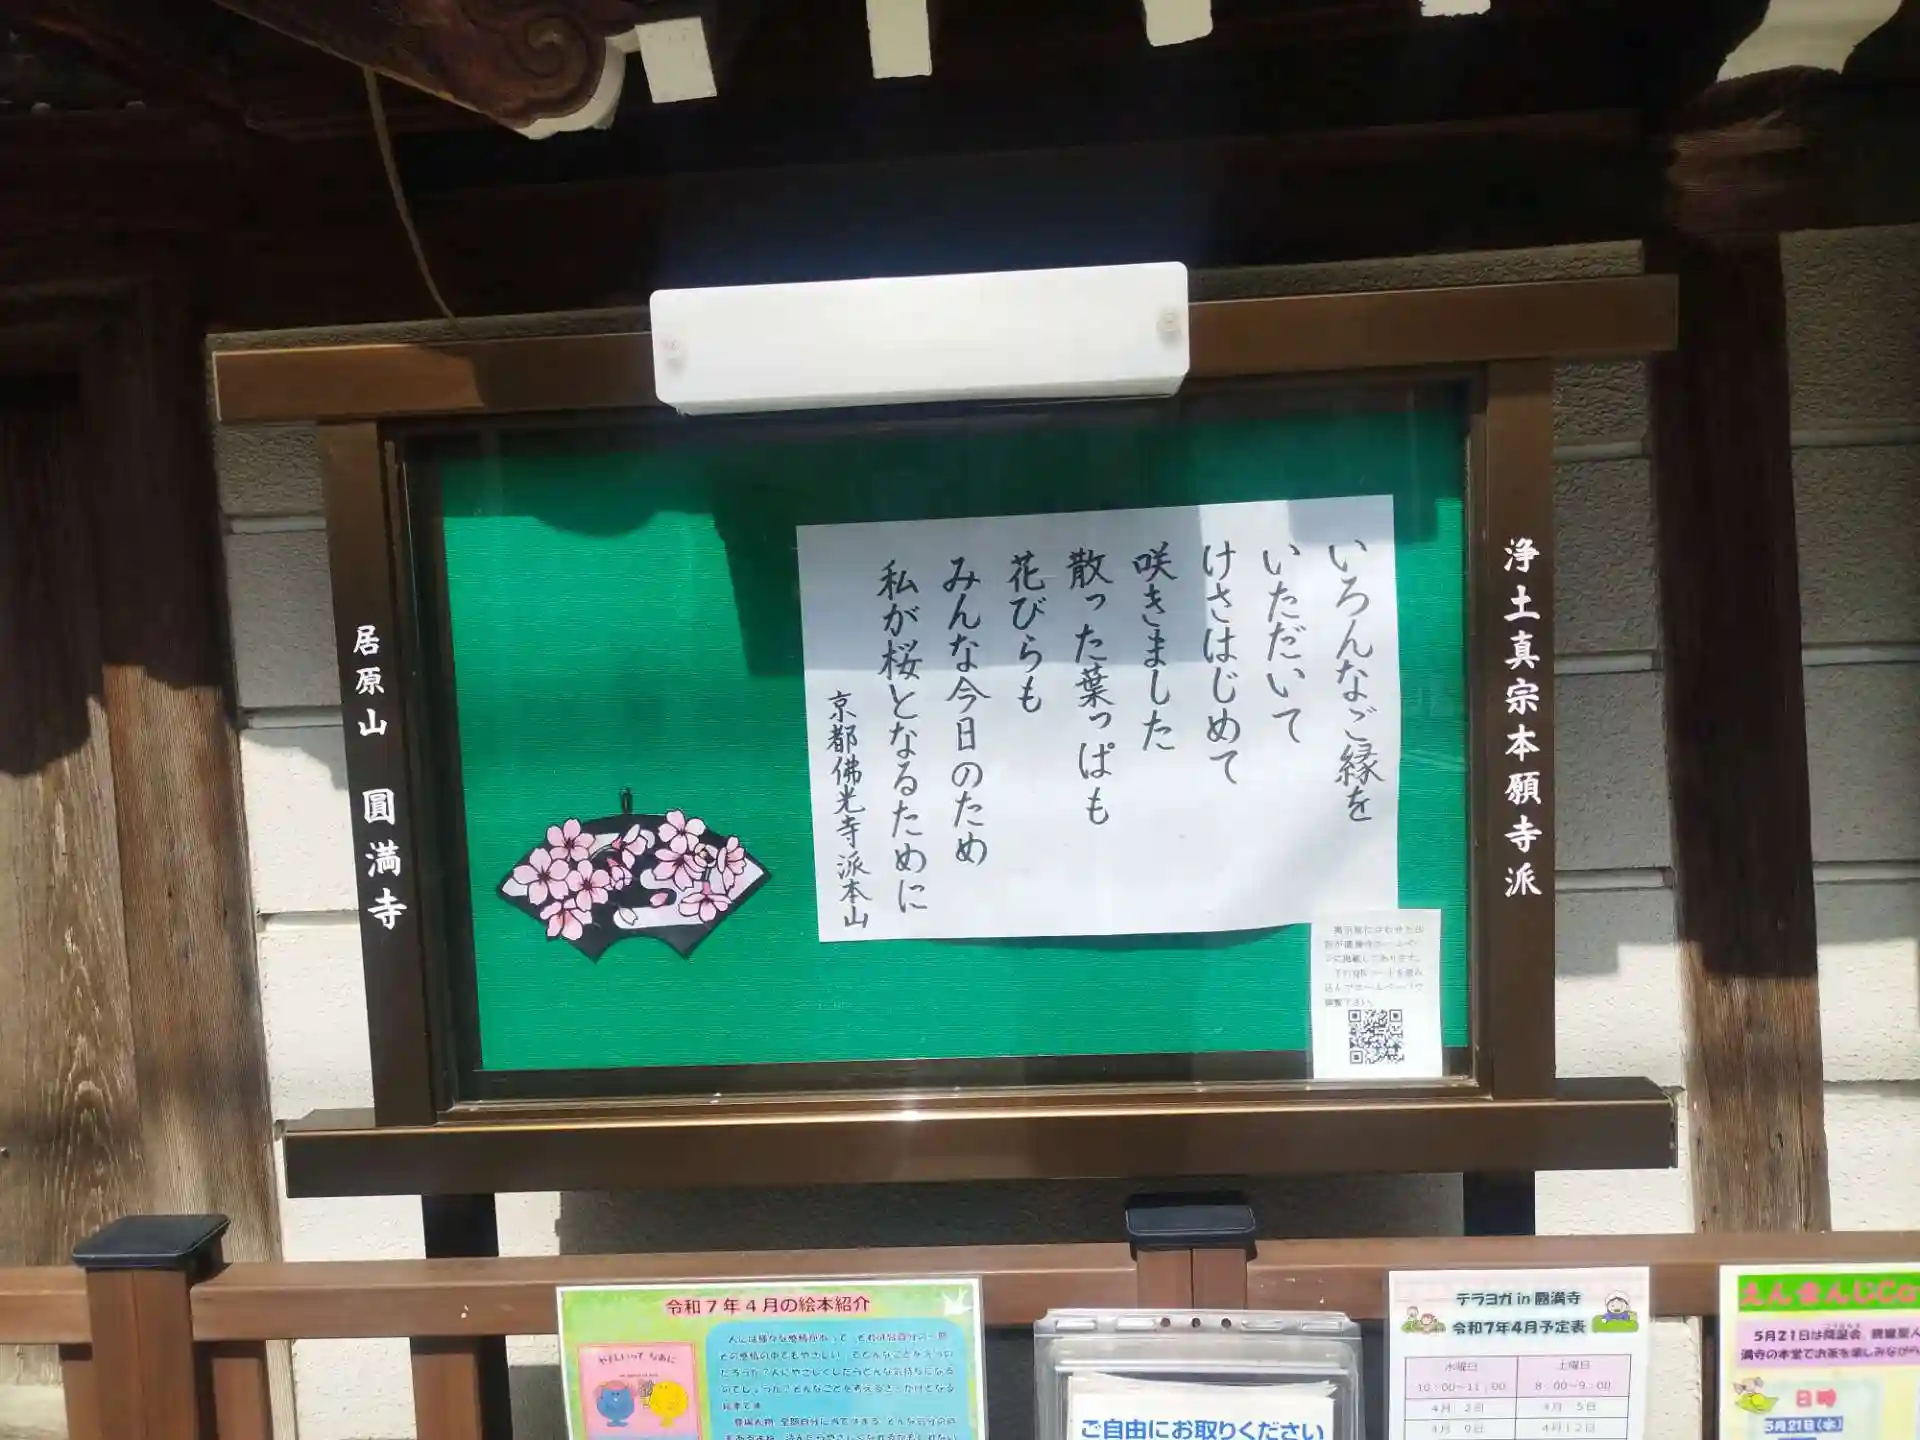 浄土真宗本願寺派
いろんなご縁を
いただいて
けさはじめて
咲きました
散った葉っぱも
花びらも
みんな今日のため
私が桜となるために
京都佛光寺派本山
居原山 圓満寺
令和7年4月の絵本紹介
やさしいって なあに
ご自由にお取りください
テラヨガ in 圓満寺
令和7年4月予定表
水曜日
土曜日
10:00～11:00
8:00～9:00
4月 2日
4月 5日
4月 9日
4月12日
えんまんじCa
5月21日は降誕会
満寺の本堂でお茶を楽しみながら
日時
5月21日(水)